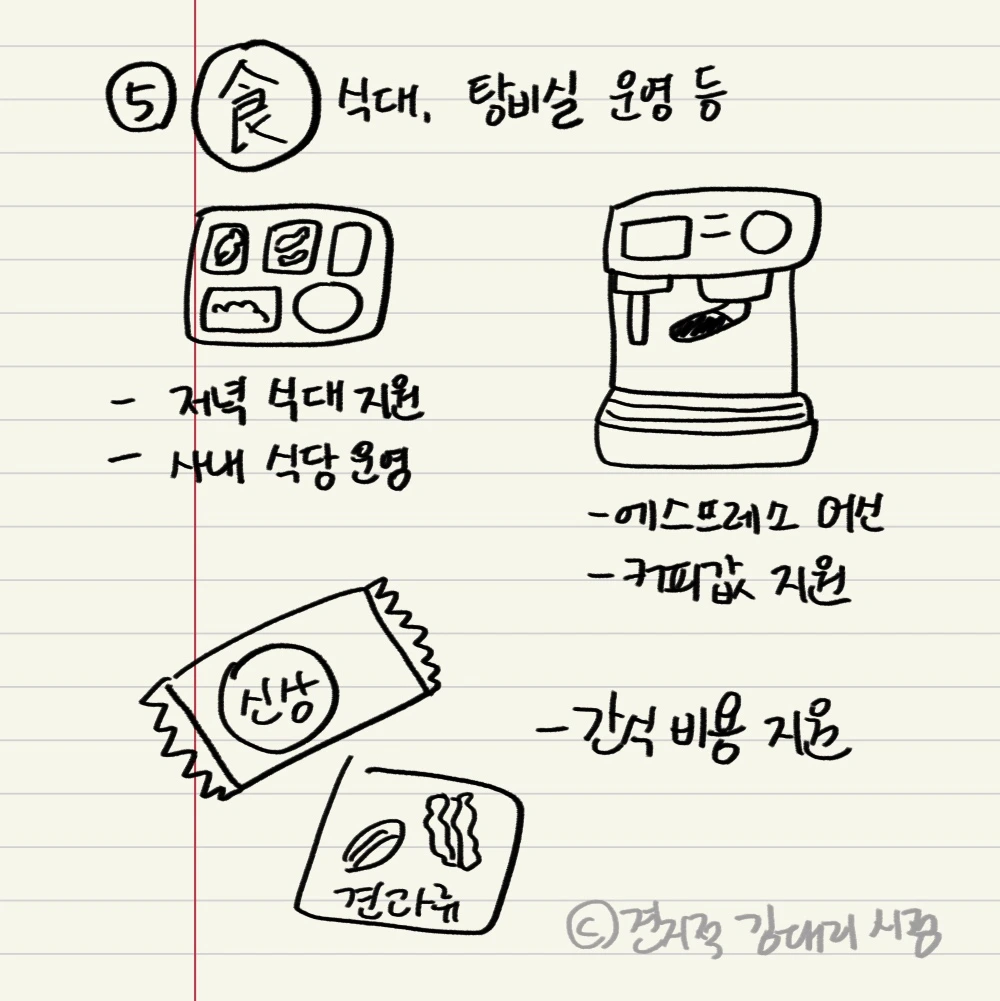 ⑤ 食 식대, 탕비실 운영 등
- 저녁 식대 지원
- 사내 식당 운영
- 에스프레소 머신
- 커피값 지원
신상
- 간식 비용 지원
견과류
ⓒ 견지적 김대리 시점